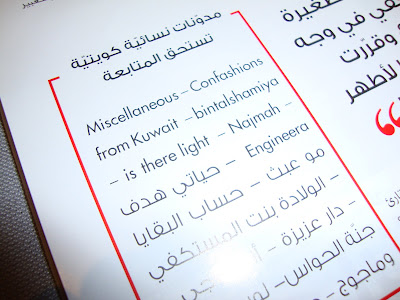 مدوّنات نسائيّة كويتيّة
تستحق المتابعة
Miscellaneous – Confashions
from Kuwait – bintalshamiya
– is there light – Najmah –
Engineera – حياتي هدف
مو عبث – حساب البقايا
– الولادة بنت المستكفي
– دار عزيزة –
جنّة الحواس –
وماجوج –
صغيرة
في وجه
وقرّرت
لأطهر